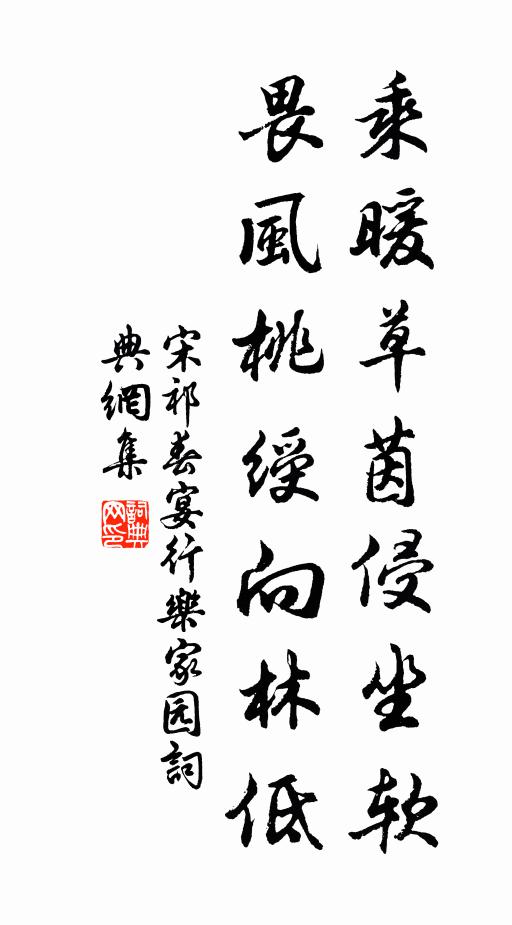 乘暖草茵侵坐软
畏風桃綬向林低
宋祁春宴行樂家园詞
典網集
詞典
网印